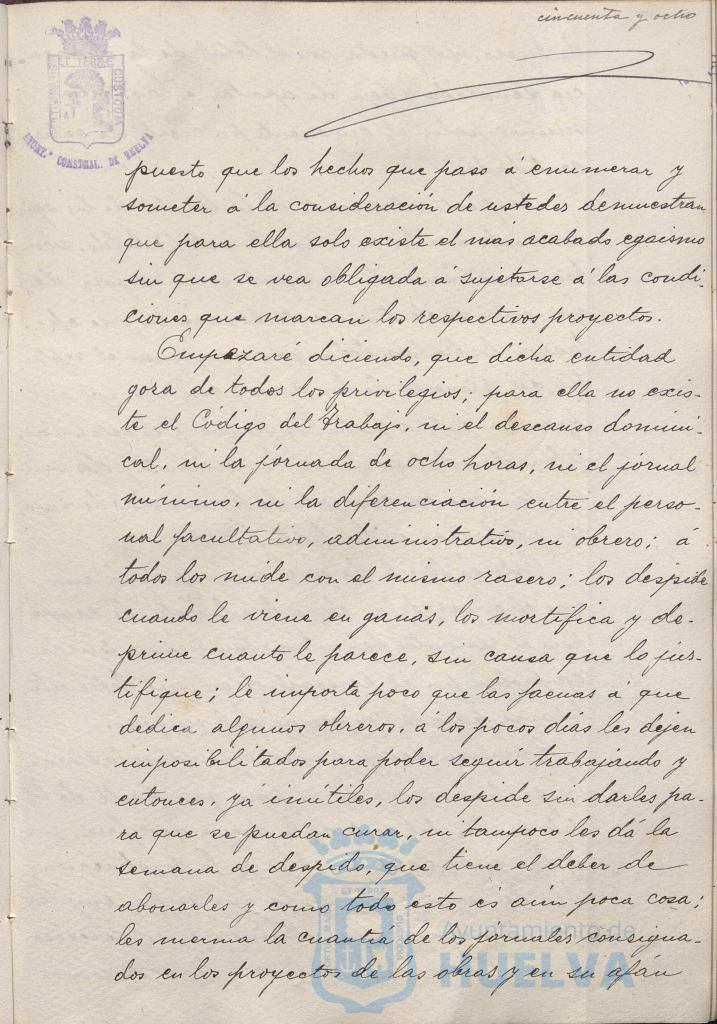 cincuenta y ocho
EL TERRE
CUSTODIA
AYUNT.º CONSTNAL. DE HUELVA
puesto que los hechos que paso á enumerar y
someter á la consideración de ustedes demuestran
que para ella solo existe el mas acabado egoismo
sin que se vea obligada á sujetarse á las condi-
ciones que marcan los respectivos proyectos.
Empezaré diciendo, que dicha entidad
goza de todos los privilegios; para ella no exis-
te el Código del Trabajo, ni el descanso domini-
cal, ni la jornada de ocho horas, ni el jornal
mínimo, ni la diferenciación entre el perso-
nal facultativo, administrativo, ni obrero; á
todos los mide con el mismo rasero; los despide
cuando le viene en ganas, los mortifica y de-
prime cuanto le parece, sin causa que lo jus-
tifique; le importa poco que las faenas á que
dedica algunos obreros, á los pocos dias les dejen
imposibilitados para poder seguir trabajando y
entonces, yá inútiles, los despide sin darles pa-
ra que se puedan curar, ni tampoco les dá la
semana de despido, que tiene el deber de
abonarles y como todo esto és aún poca cosa;
les merma la cuantía de los jornales consigna-
dos en los proyectos de las obras y en su afán
Ayuntamiento de
HUELVA